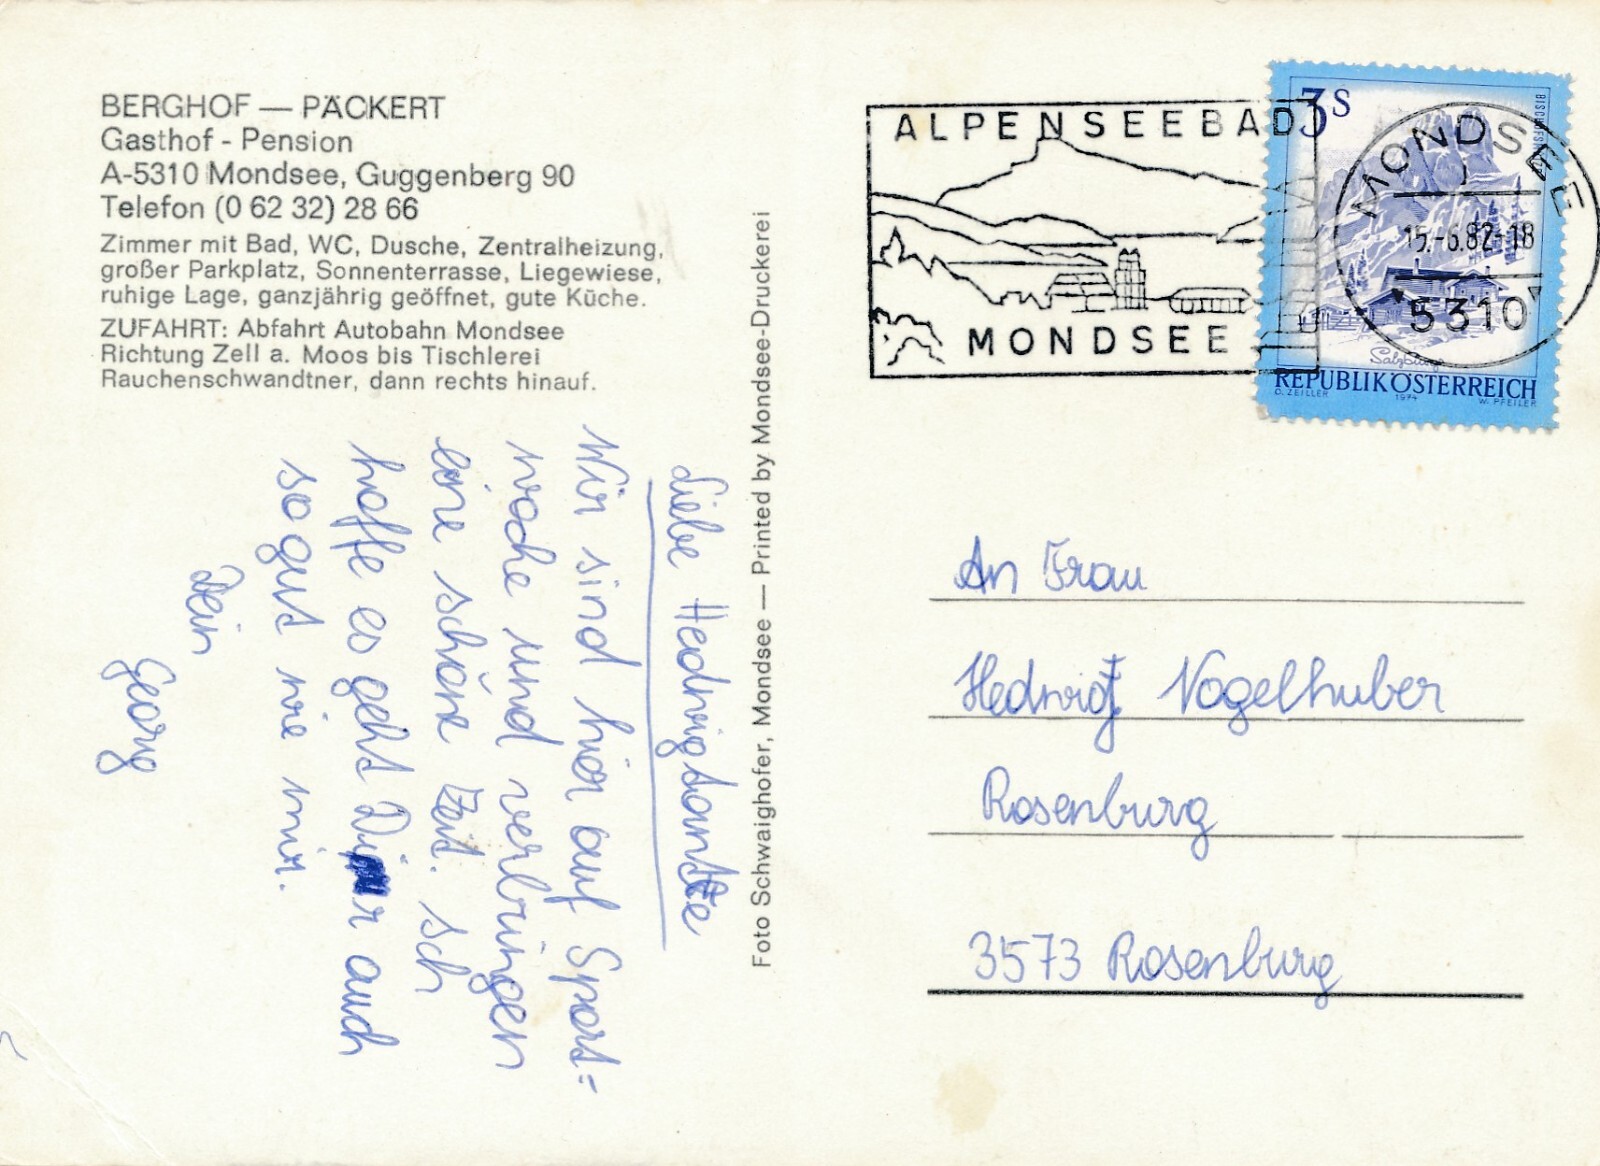 BERGHOF — PÄCKERT
Gasthof - Pension
A-5310 Mondsee, Guggenberg 90
Telefon (0 62 32) 28 66
Zimmer mit Bad, WC, Dusche, Zentralheizung,
großer Parkplatz, Sonnenterrasse, Liegewiese,
ruhige Lage, ganzjährig geöffnet, gute Küche.
ZUFAHRT: Abfahrt Autobahn Mondsee
Richtung Zell a. Moos bis Tischlerei
Rauchenschwandtner, dann rechts hinauf.
Liebe Hedwigtante
Wir sind hier auf Sport=
woche und verbringen
eine schöne Zeit. Ich
hoffe es geht Dir auch
so gut wie mir.
Dein
Georg
Foto Schwaighofer, Mondsee — Printed by Mondsee-Druckerei
ALPENSEEBAD
MONDSEE
3S
MONDSEE
15.-6.82-18
5310
Salzburg
REPUBLIK ÖSTERREICH
O. ZEILLER 1974 W. PFEILER
An Frau
Hedwig Vogelhuber
Rosenburg
3573 Rosenburg